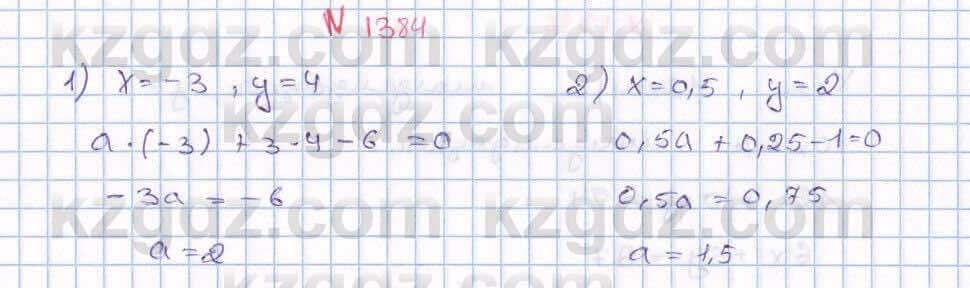 N 1384
1) x=-3, y=4
a·(-3)+3·4-6=0
-3a=-6
a=2
2) x=0,5, y=2
0,5a+0,25-1=0
0,5a=0,75
a=1,5
kzgdz.com kzgdz.com
kzgdz.com kzgdz.com
kzgdz.com kzgdz.com